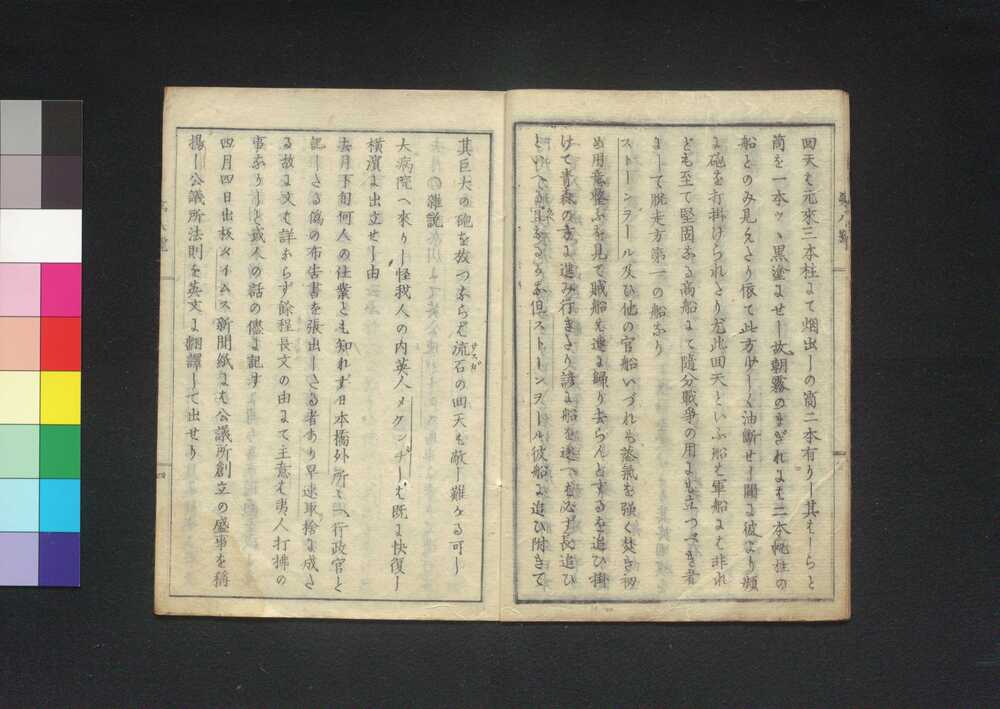 回天も元來三本柱にて烟出しの筒二本有りし其はしらと
筒を一本ツヽ黒塗ませし故朝霧のまぎれにも二本帆柱の
船とのみ見えたり依て此方少しく油斷せし間に彼より頻
に砲を打掛けられたり尤此回天といふ船も軍船にも非れ
ども至て堅固なる商船にて隨分戰爭の用にも立つべき者
にして脱走方第一の船なり
ストーンヲール及ひ他の官船いづれも蒸氣を強く焚き初
め用意整ふを見て賊船も速に歸り去らんとするを追ひ掛
けて青森の方に進み行きたり諺に船を逐へば必ず長追ひ
といへり宜なるかな但ストーンヲール彼船に追ひ附きて
其巨大の砲を放つならば流石の回天も敵し難かる可し
○雜説
大病院へ來りし怪我人の内英人メクンヂーも既に快復し
横濱に出立せし由
去月下旬何人の仕業とも知れず日本橋外所々へ行政官と
記したる僞の布告書を張出したる者あり早速取捨に成た
る故に文も詳ならず餘程長文の由にて主意も夷人打拂の
事なりしと或人の話の儘に記す
四月四日出板タイムス新聞紙にも公議所創立の盛事を稱
揚し公議所法則を英文に翻譯して出せり
四